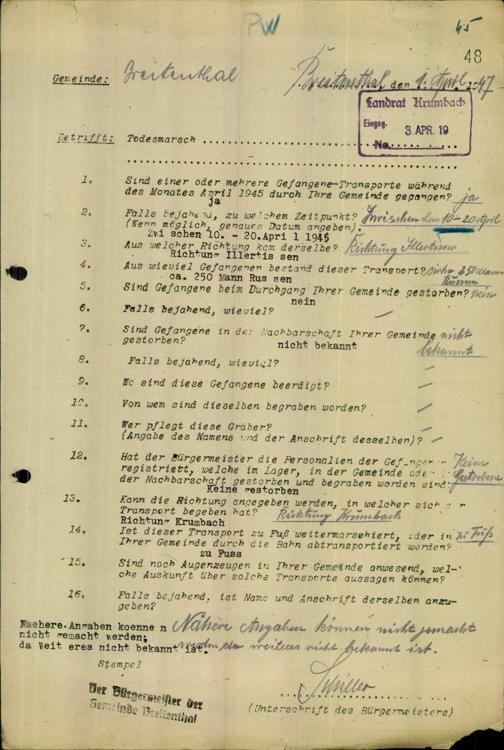 PW
45
48
Gemeinde: Breitenthal Breitenthal den 1. April 1947
Landrat Krumbach
Eingeg. 3. APR. 19
No.
Betrifft: Todesmarsch
1. Sind einer oder mehrere Gefangene-Transporte während
des Monates April 1945 durch Ihre Gemeinde gegangen? ja
ja
2. Falls bejahend, zu welchem Zeitpunkt? Zwischen dem 10-20 April
(Wenn möglich, genaues Datum angeben)
Zwi schen 10. - 20.Apri l 1945
3. Aus welcher Richtung kam derselbe? Richtung Illertissen
Richtung Illertis sen
4. Aus wieviel Gefangenen bestand dieser Transport? zirka 250 Mann
ca. 250 Man Rus sen Russen
5. Sind Gefangene beim Durchgang Ihrer Gemeinde gestorben? nein
nein
6. Falls bejahend, wieviel? –
7. Sind Gefangene in der Nachbarschaft Ihrer Gemeinde nicht
gestorben? nicht bekannt bekannt
8. Falls bejahend, wieviel? –
9. Wo sind diese Gefangene beerdigt? –
10. Von wem sind dieselben begraben worden? –
11. Wer pflegt diese Gräber?
(Angabe des Namens und der Anschrift desselben)? –
12. Hat der Bürgermeister die Personalien der Gefangenen Keine
registriert, welche im Lager, in der Gemeinde oder in Gestorbene
der Nachbarschaft gestorben und begraben worden sind?
Keine gestorben
13. Kann die Richtung angegeben werden, in welcher sich der
Transport begeben hat? Richtung Krumbach
Richtung Krumbach
14. Ist dieser Transport zu Fuß weitermarschiert, oder in zu Fuß
Ihrer Gemeinde durch die Bahn abtransportiert worden?
zu Fuss
15. Sind noch Augenzeugen in Ihrer Gemeinde anwesend, wel-
che Auskunft über solche Transporte aussagen können? –
16. Falls bejahend, ist Name und Anschrift derselben anzu-
geben? –
Naehere Angaben koenne n Nähere Angaben können nicht gemacht
nicht gemacht werden, werden, da weiteres nicht bekannt ist.
da weit eres nicht bekannt ist.
Stempel
Schiller
Der Bürgermeister der
Gemeinde Breitenthal
(Unterschrift des Bürgermeisters)